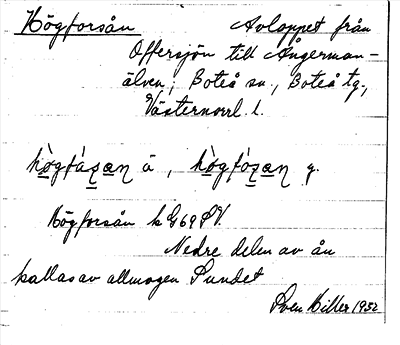 Högforsån Avloppet från
Offersjön till Ångerman-
älven; Boteå sn., Boteå tg.,
Västernorrl. l.
hògfȧʂan å, hògfòʂan y.
Högforsån k G69 SV.
Nedre delen av ån
kallas av allmogen Sundet
Sven Hiller 1952